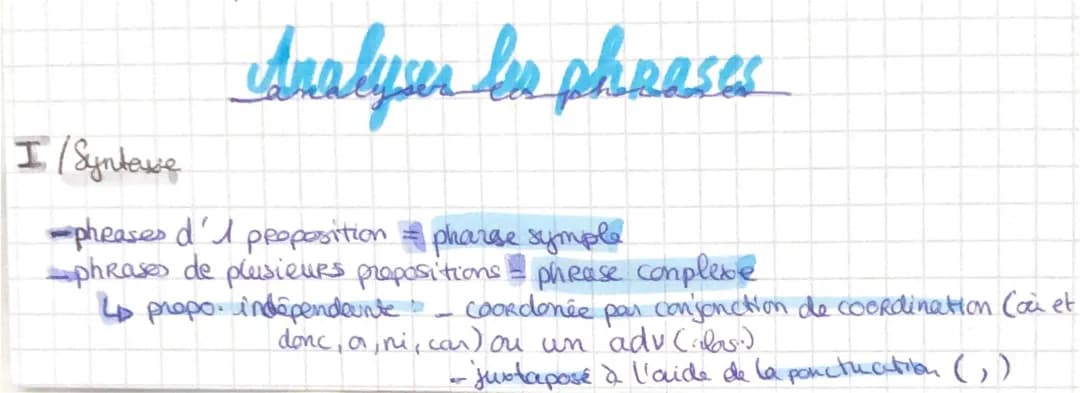 Analyser les phrases
I / Syntaxe
- phrases d'1 proposition = pharse symple
- phrases de plusieurs propositions = phrase conplexe
↳ propo. indépendante : - coordonée par conjonction de coordination (où et
donc, or, ni, car) ou un adv
- juxtaposé à l'aide de la ponctuation (, )